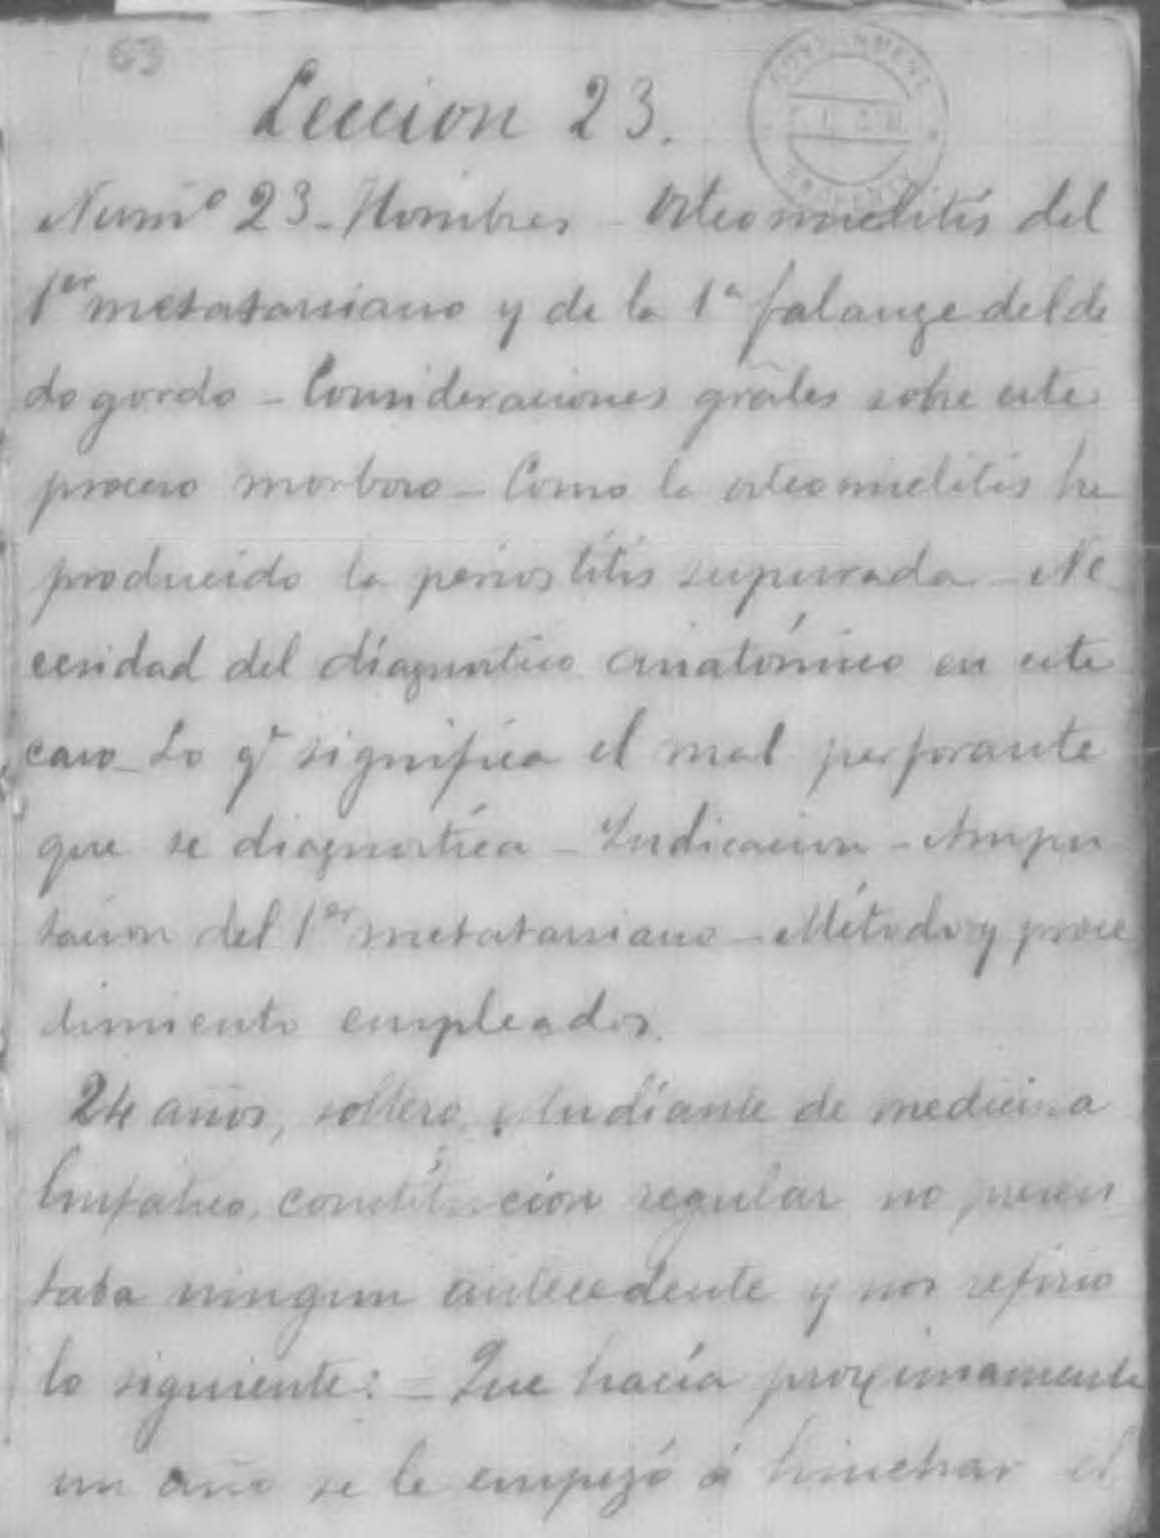 63
Leccion 23.
Numº 23 - Hombres - Osteomielitis del
1er metatarsiano y de la 1ª falange del de
do gordo - Consideraciones grâles sobre este
proceso morboso - Como la osteomielitis ha
producido la periostitis supurada - Ne
cesidad del diagnostico anatómico en este
caso - Lo qe significa el mal perforante
que se diagnostica - Indicacion - Ampu
tacion del 1er metatarsiano - Método y proce
dimiento empleados.
24 años, soltero, estudiante de medicina
linfatico, constitucion regular no presen
taba ningun antecedente y nos refirió
lo siguiente: = Que hacía proximamente
un año se le empezó á hinchar el